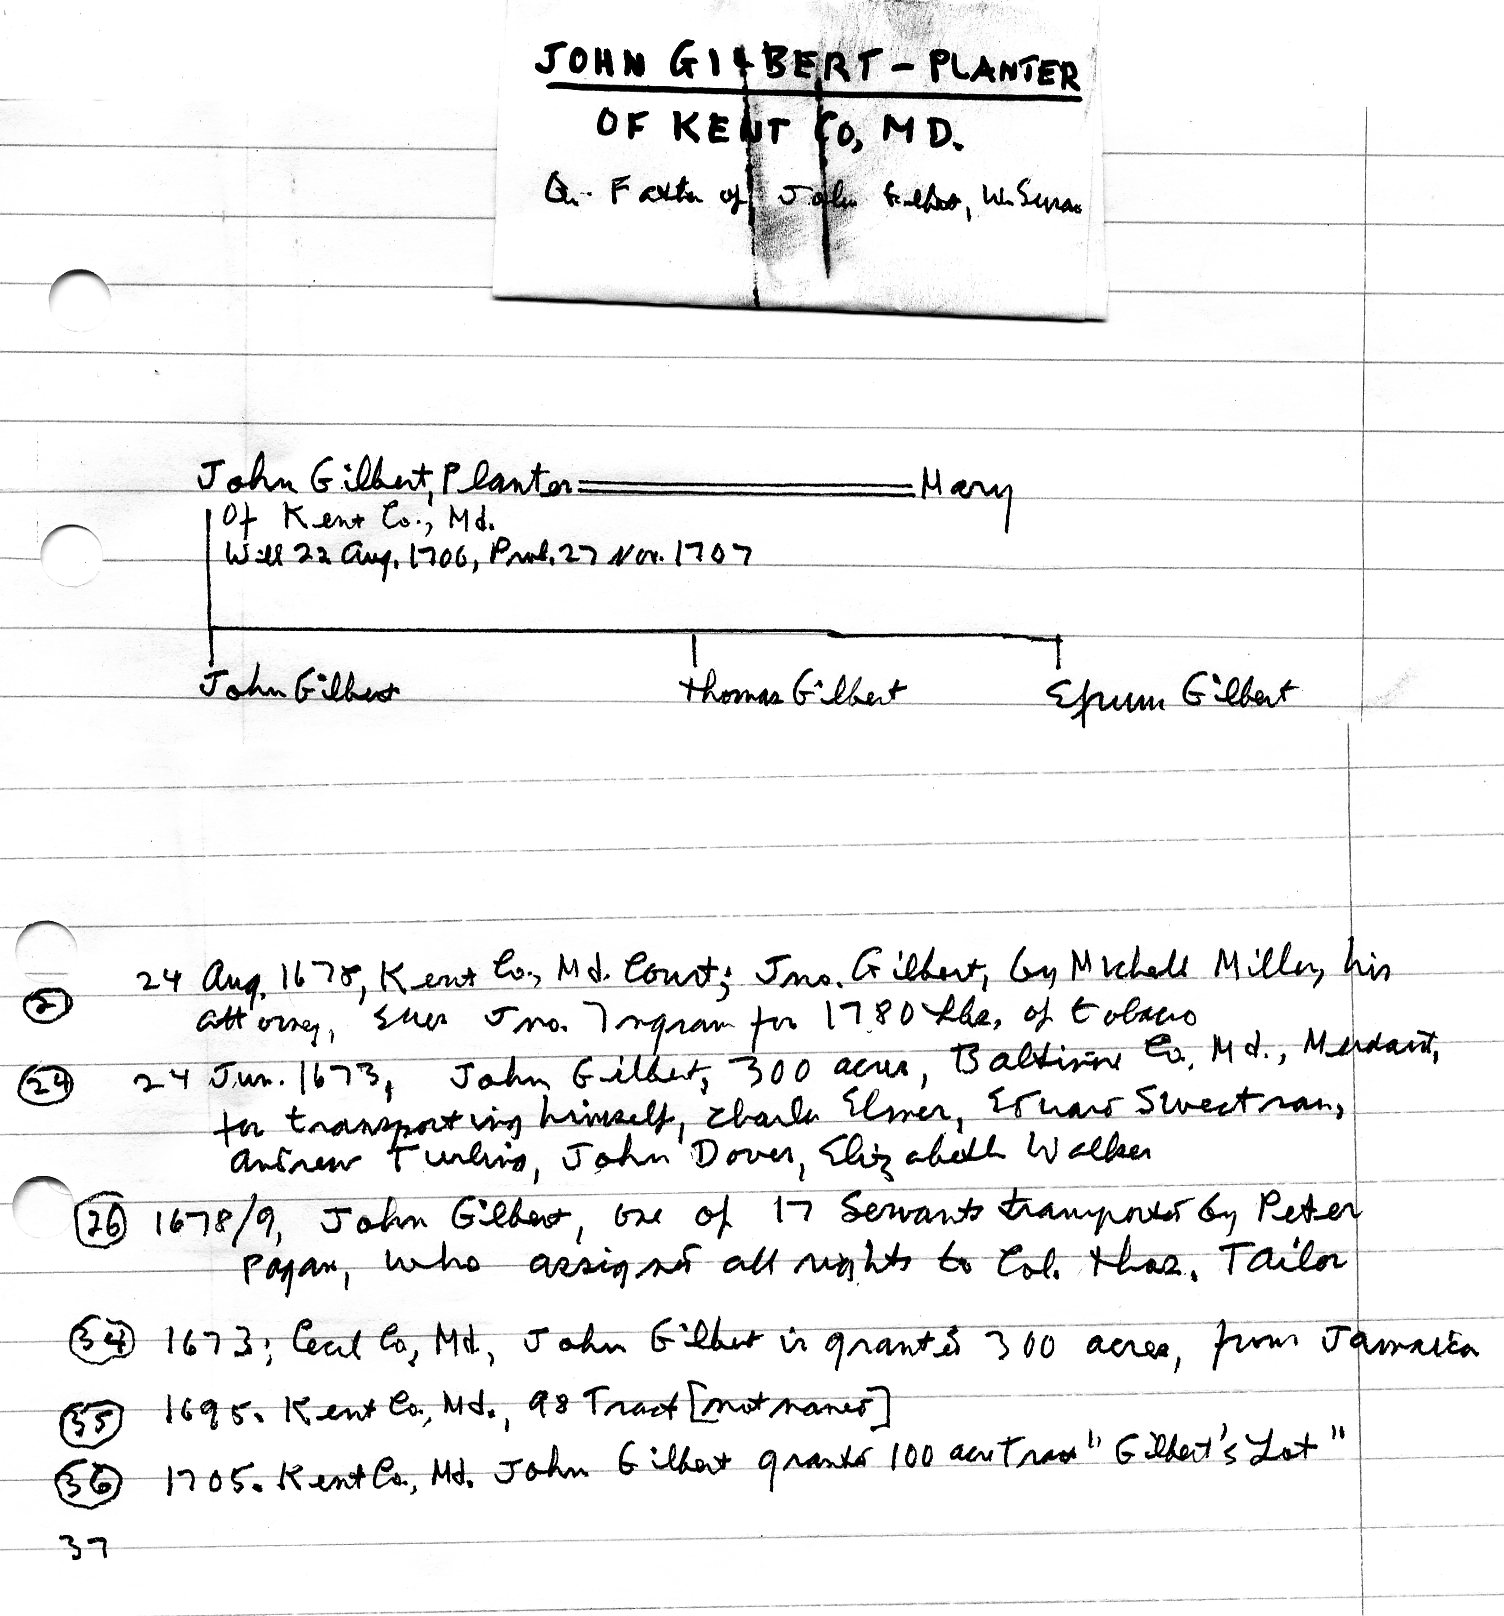 JOHN GILBERT - PLANTER
OF KENT CO, MD.
Qu. Father of John Gilbert,
John Gilbert, Planter Mary
Of Kent Co., Md.
Will 22 Aug. 1706, Prob. 27 Nov. 1707
John Gilbert Thomas Gilbert Efrum Gilbert
24 Aug. 1678, Kent Co., Md. Court; Jno. Gilbert, by Michell Miller, his
2 attorney, sues Jno. Ingram for 1780 Lbs. of tobacco
24 24 Jun. 1673, John Gilbert, 300 acres, Baltimore Co. Md., Merchant,
for transporting himself, Charles Elmer, Edward Sweetnam,
Andrew Turling, John Dover, Elizabeth Walker
26 1678/9, John Gilbert, one of 17 Servants transported by Peter
Pagan, who assigned all rights to Col. Thos. Tailor
34 1673; Cecil Co, Md, John Gilbert is granted 300 acres, from Jamaica
35 1695. Kent Co., Md., 98 Tract [not named]
36 1705. Kent Co., Md. John Gilbert granted 100 acre Tract "Gilbert's Lot"
37